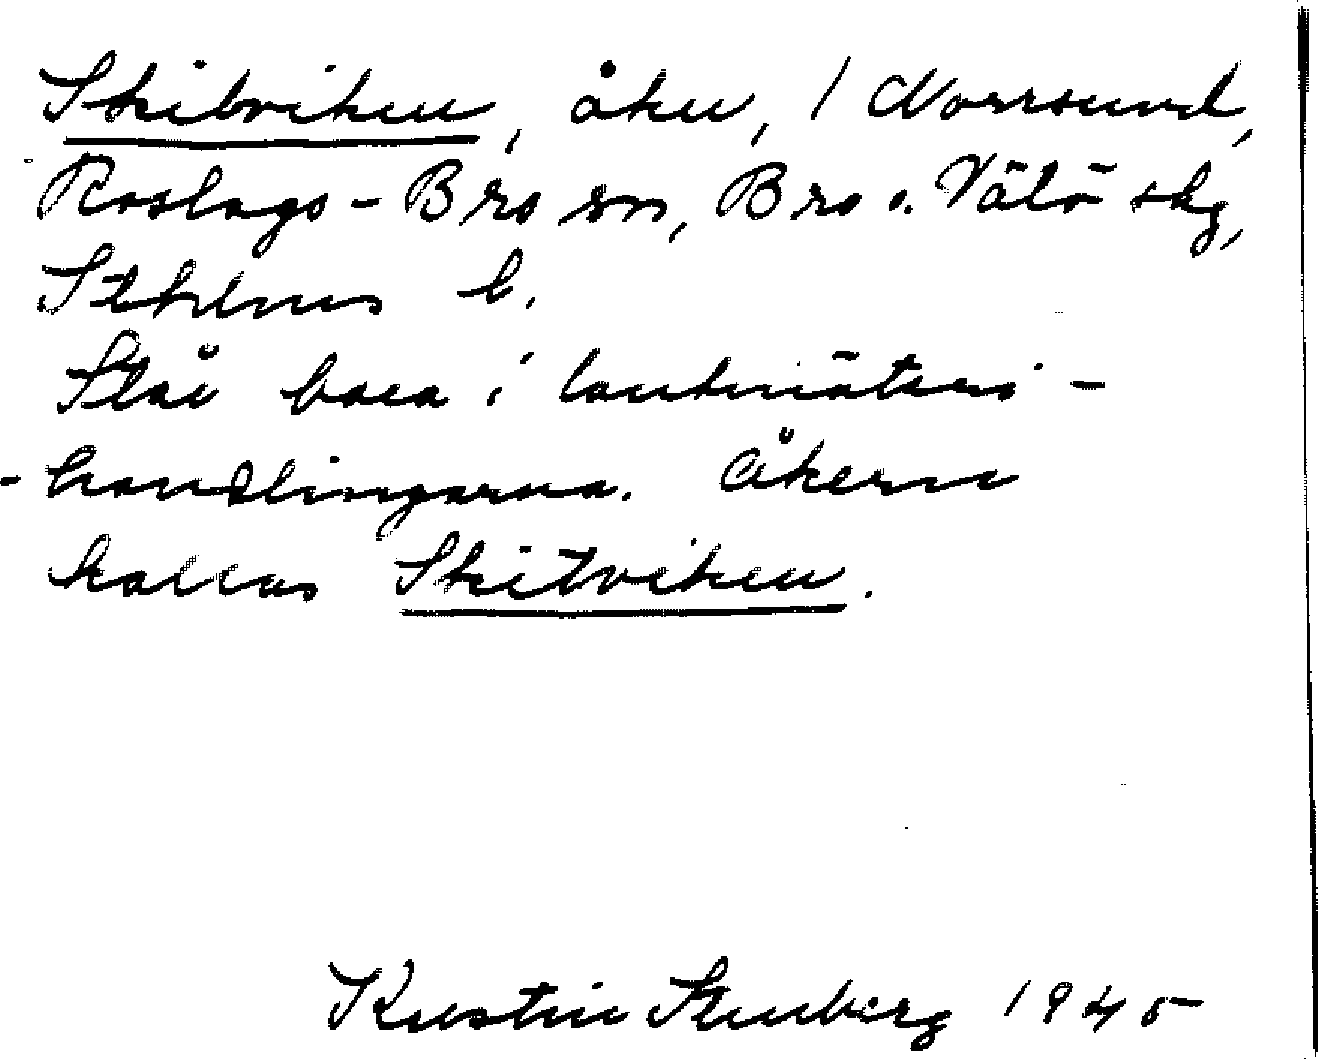 Skibviken, åker, / Norrsund,
Roslags-Bro sn, Bro o. Vätö skg,
Sthlms l.
Står bara i lantmäteri-
-handlingarna. Åkern
kallas Skitviken.
Kerstin Stenberg 1945